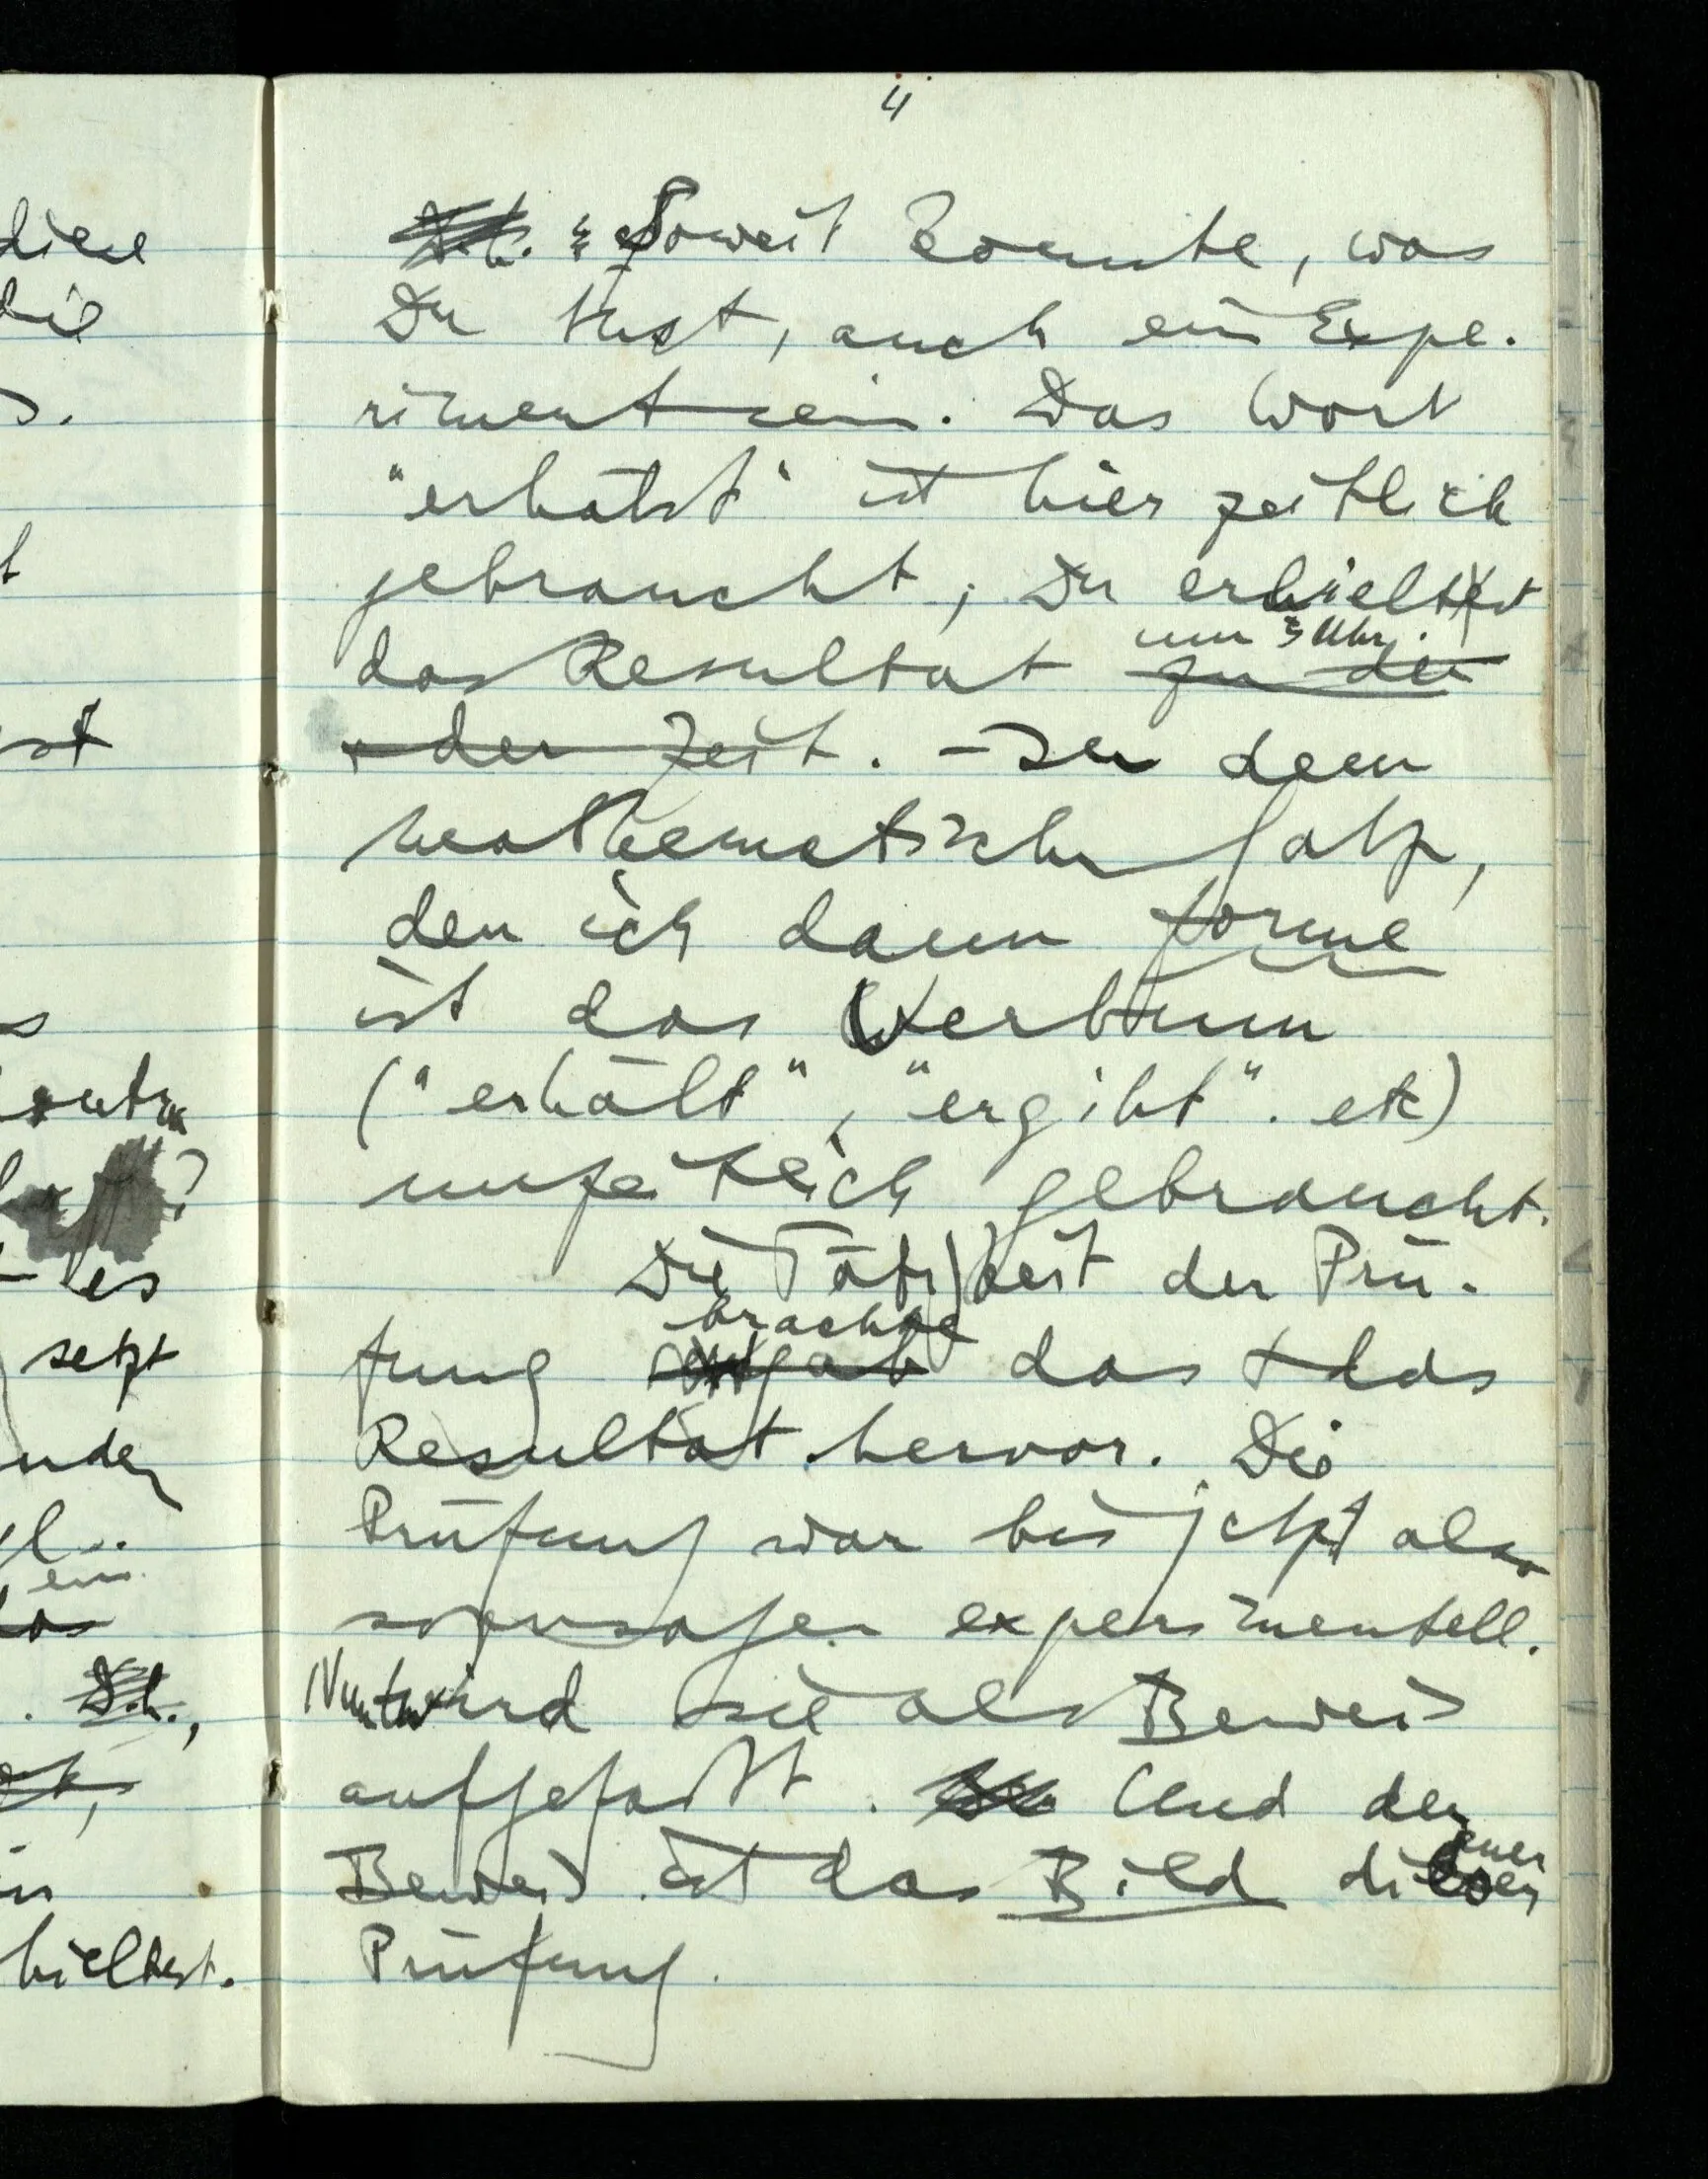 diese
die
s.
t
st
s
?
es
setzt
ein
das
. D.h.,
in
hieltest.
4
D.h. : Soweit konnte, was
Du tust, auch ein Expe-
riment sein. Das Wort
"erhältst" ist hier zeitlich
gebraucht; Du erhieltest
um 3 Uhr.
das Resultat zu der
der Zeit. – In dem
mathematischen Satz,
den ich dann forme
ist das Verbum
("erhält", "ergibt". etc)
unzeitlich gebraucht.
Die Tätigkeit der Prü-
brachte
fung ergab das + das
Resultat hervor. Die
Prüfung war bis jetzt also
sozusagen experimentell.
Nun wird sie als Beweis
aufgefaßt. Und der
einer
Beweis ist das Bild dieser
Prüfung.